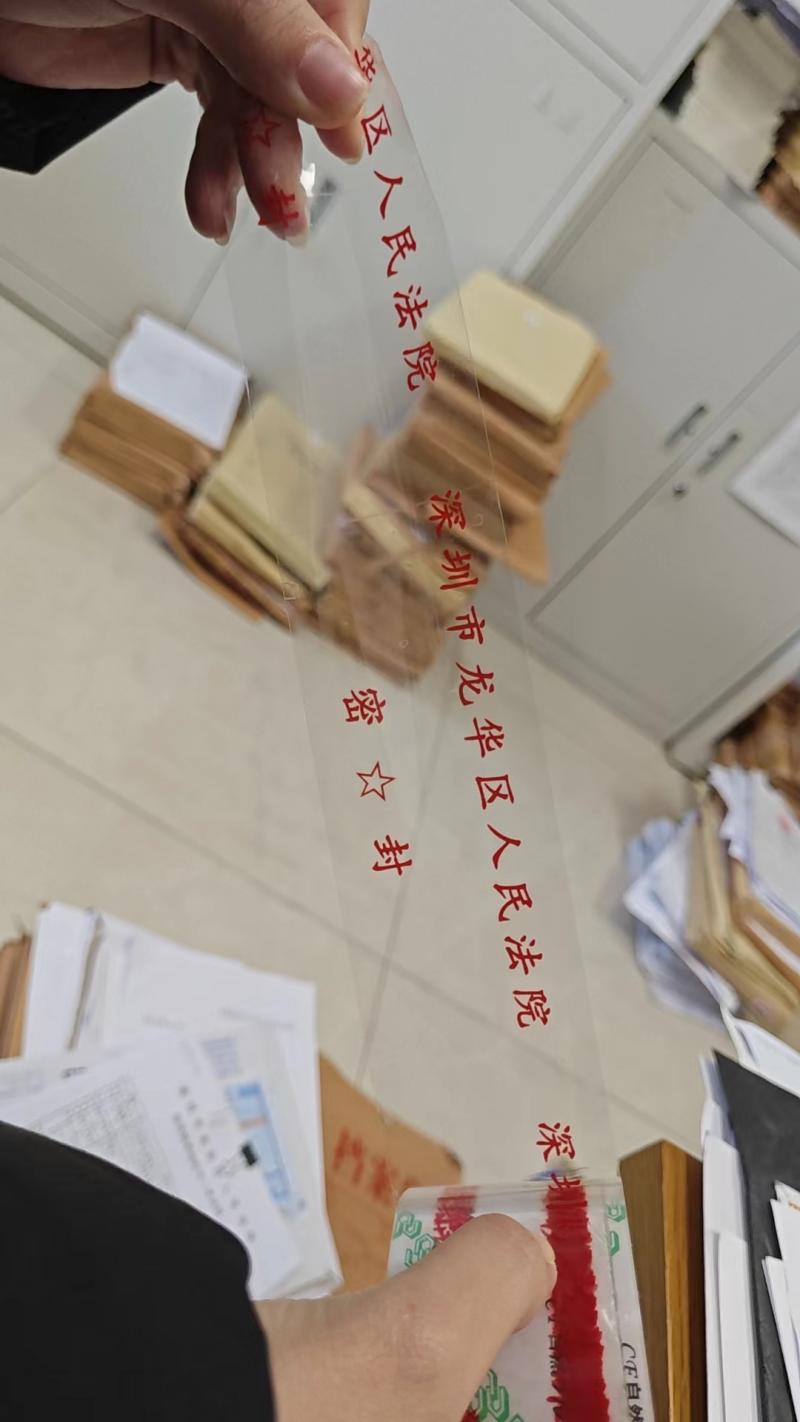 华区人民法院
☆封
深圳市龙华区人民法院
密☆封
深圳
CF自然